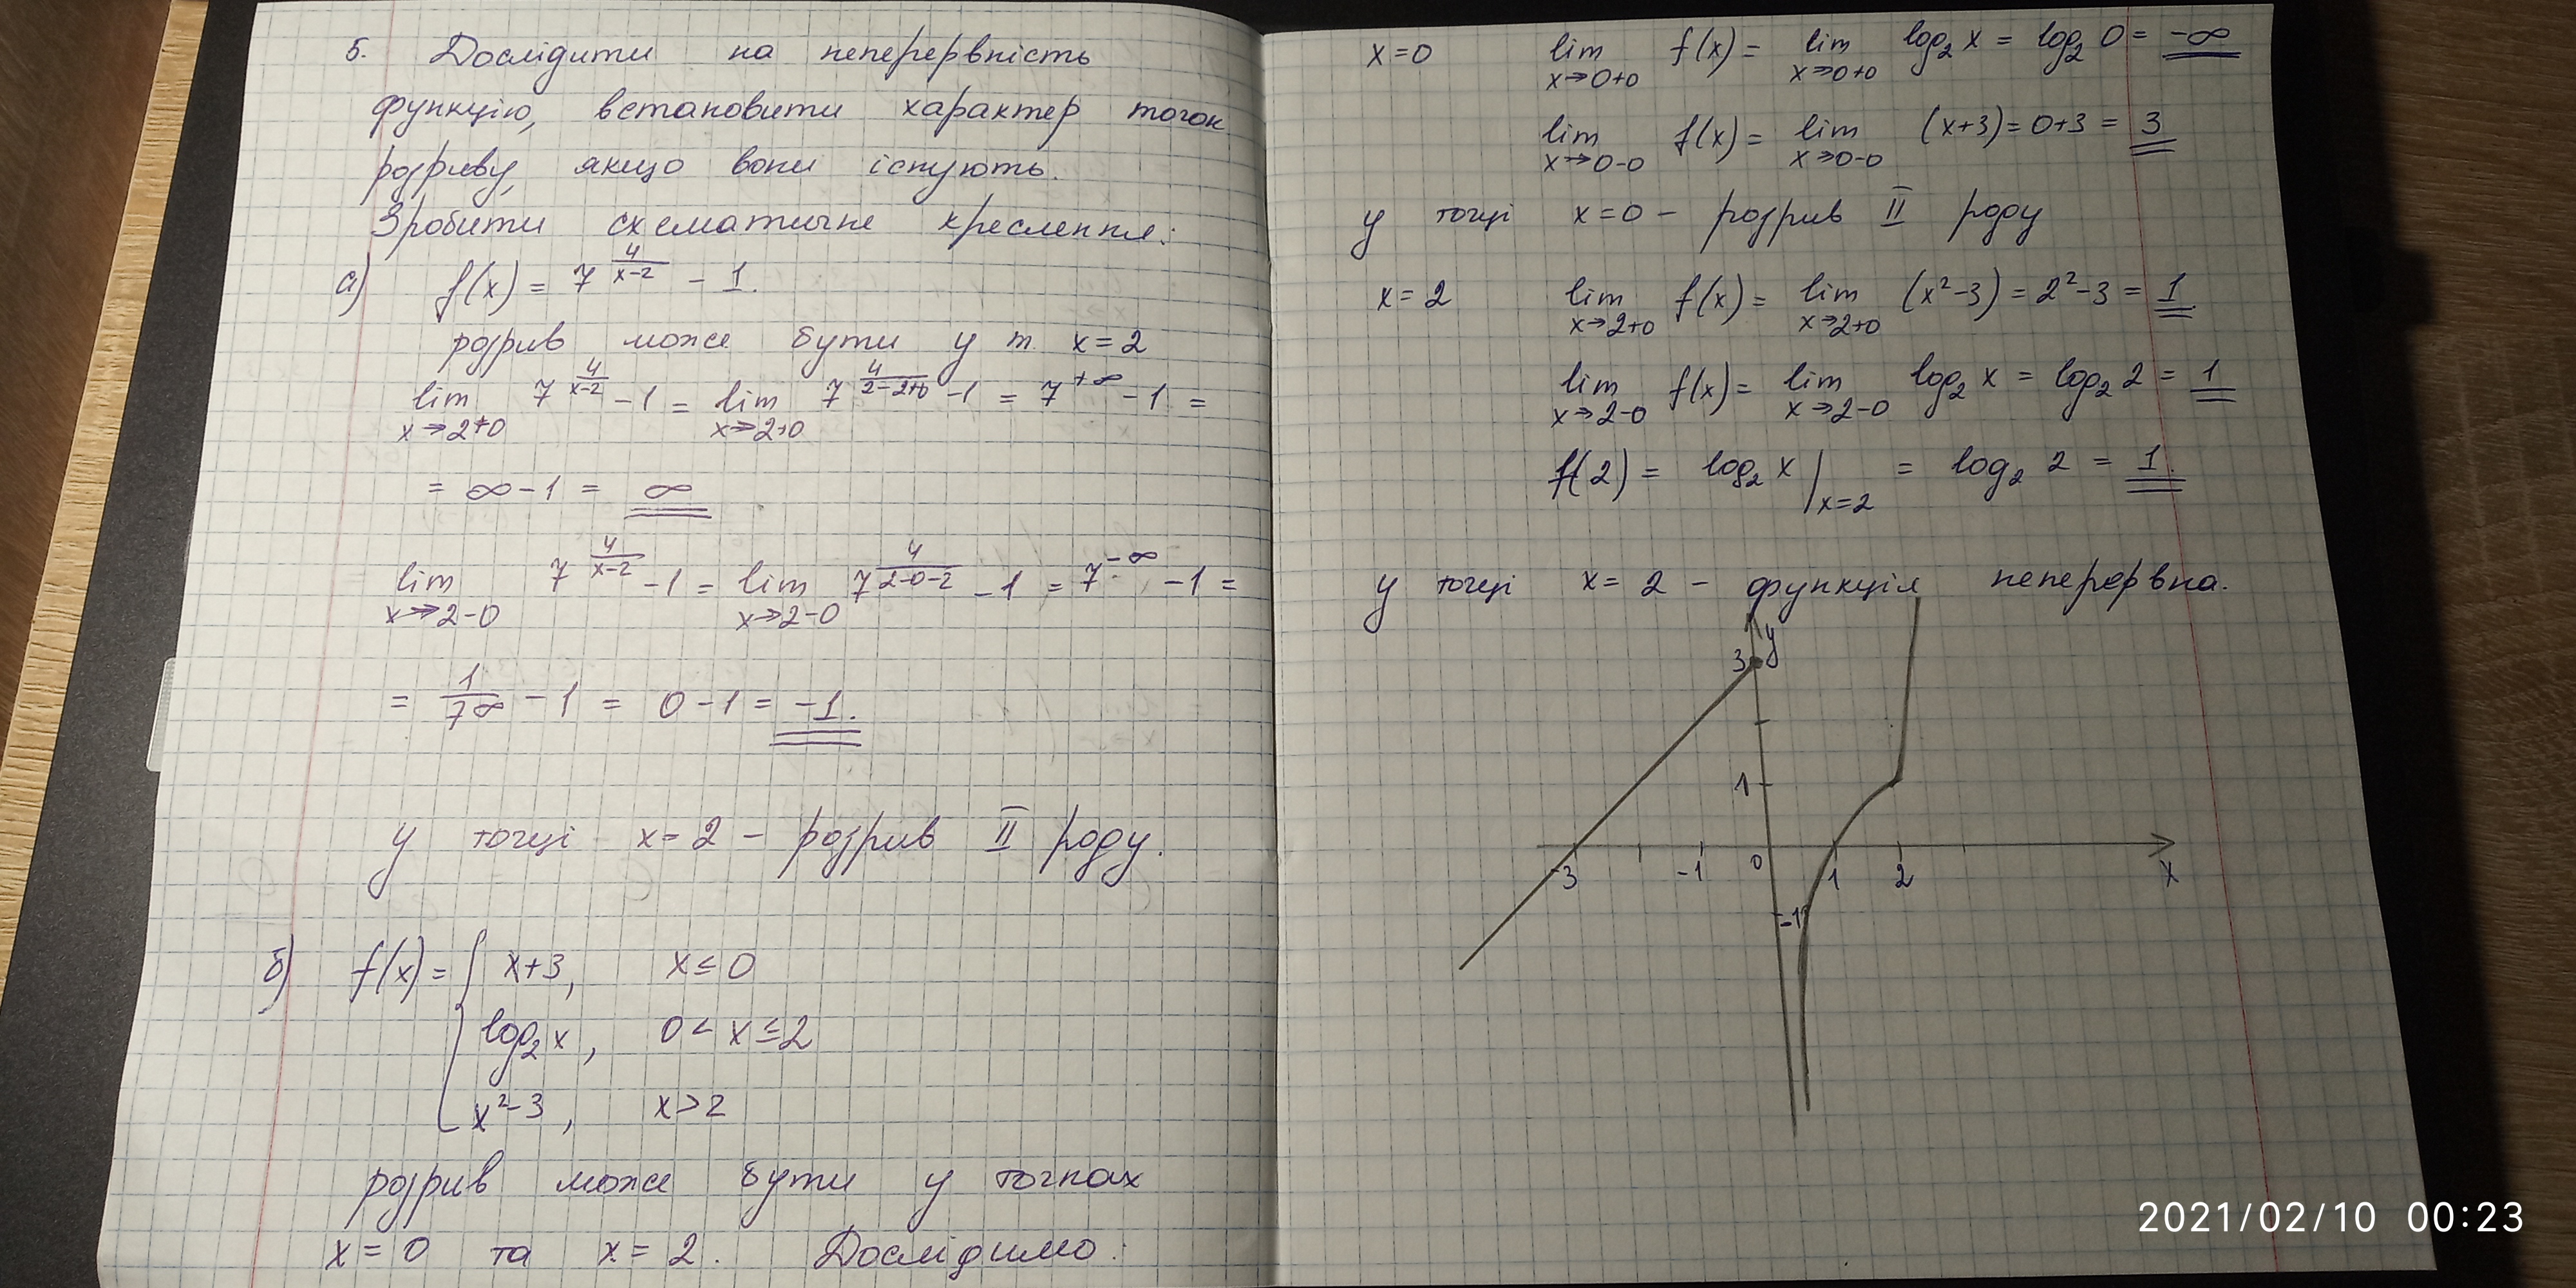 5. Дослідити на неперервність
функцію, встановити характер точок
розриву, якщо вони існують.
Зробити схематичне креслення:
а) f(x) = 7^{4/(x-2)} - 1.
розрив може бути у т. x=2
lim_{x→2+0} 7^{4/(x-2)} - 1 = lim_{x→2+0} 7^{4/(2-2+0)} - 1 = 7^{+∞} - 1 =
= ∞ - 1 = ∞
lim_{x→2-0} 7^{4/(x-2)} - 1 = lim_{x→2-0} 7^{4/(2-0-2)} - 1 = 7^{-∞} - 1 =
= 1/7^∞ - 1 = 0 - 1 = -1.
у точці x=2 - розрив II роду.
б) f(x) = { x+3, x≤0
log₂x, 0<x≤2
x²-3, x>2
розрив може бути у точках
x=0 та x=2. Дослідимо:
x=0 lim_{x→0+0} f(x) = lim_{x→0+0} log₂x = log₂0 = -∞
lim_{x→0-0} f(x) = lim_{x→0-0} (x+3) = 0+3 = 3
у точці x=0 - розрив II роду
x=2 lim_{x→2+0} f(x) = lim_{x→2+0} (x²-3) = 2²-3 = 1
lim_{x→2-0} f(x) = lim_{x→2-0} log₂x = log₂2 = 1
f(2) = log₂x |_{x=2} = log₂2 = 1.
у точці x=2 - функція неперервна.
y
3
1
-3 -1 0 1 2 x
-1
2021/02/10 00:23